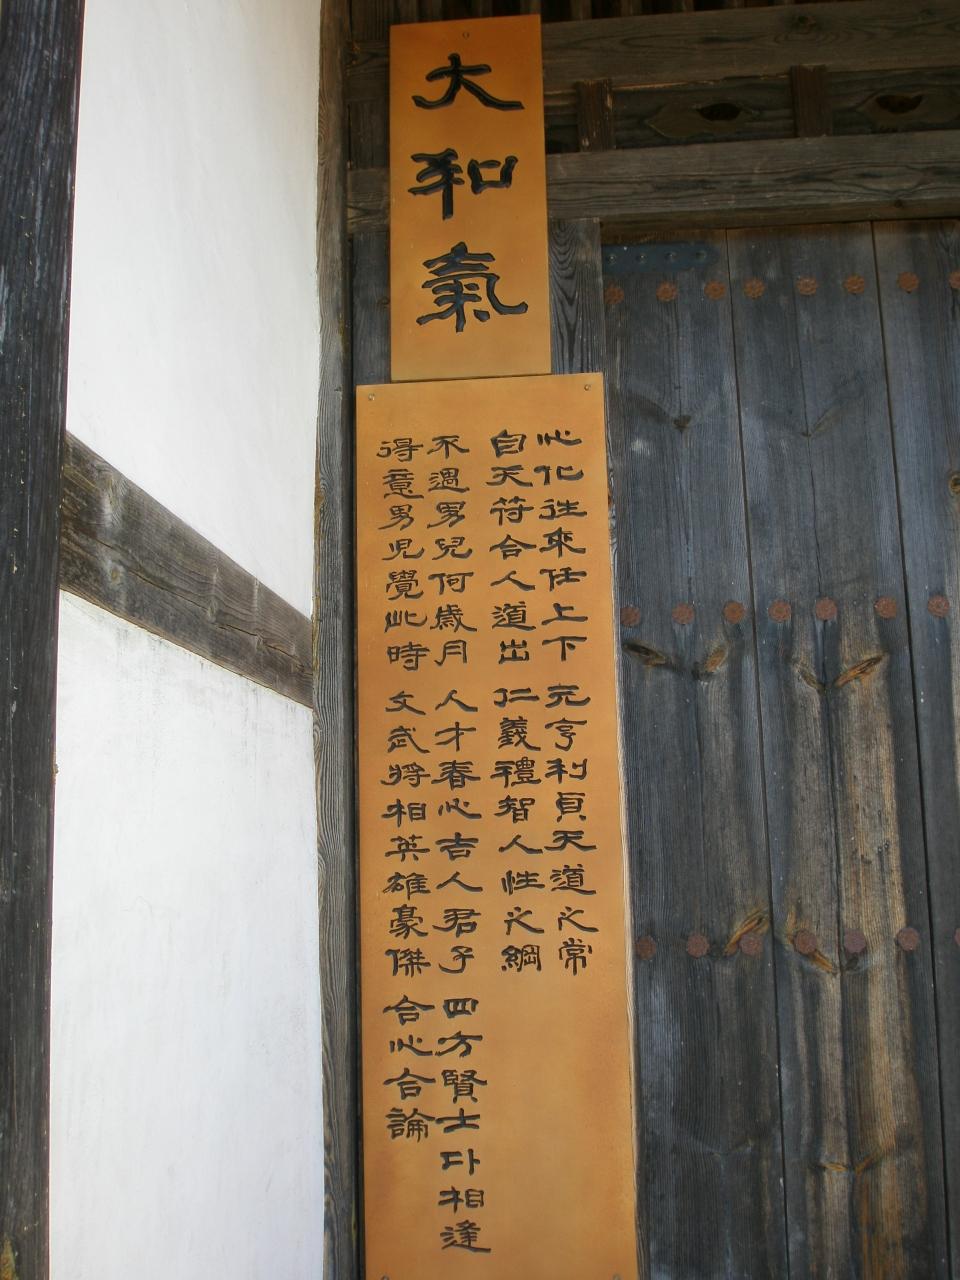 大和氣
心化往來任上下 元亨利貞天道之常
自天符合人道出 仁義禮智人性之綱
不遇男兒何歲月 人才春心吉人君子 四方賢士다相逢
得意男児覺此時 文武將相英雄豪傑 合心合論